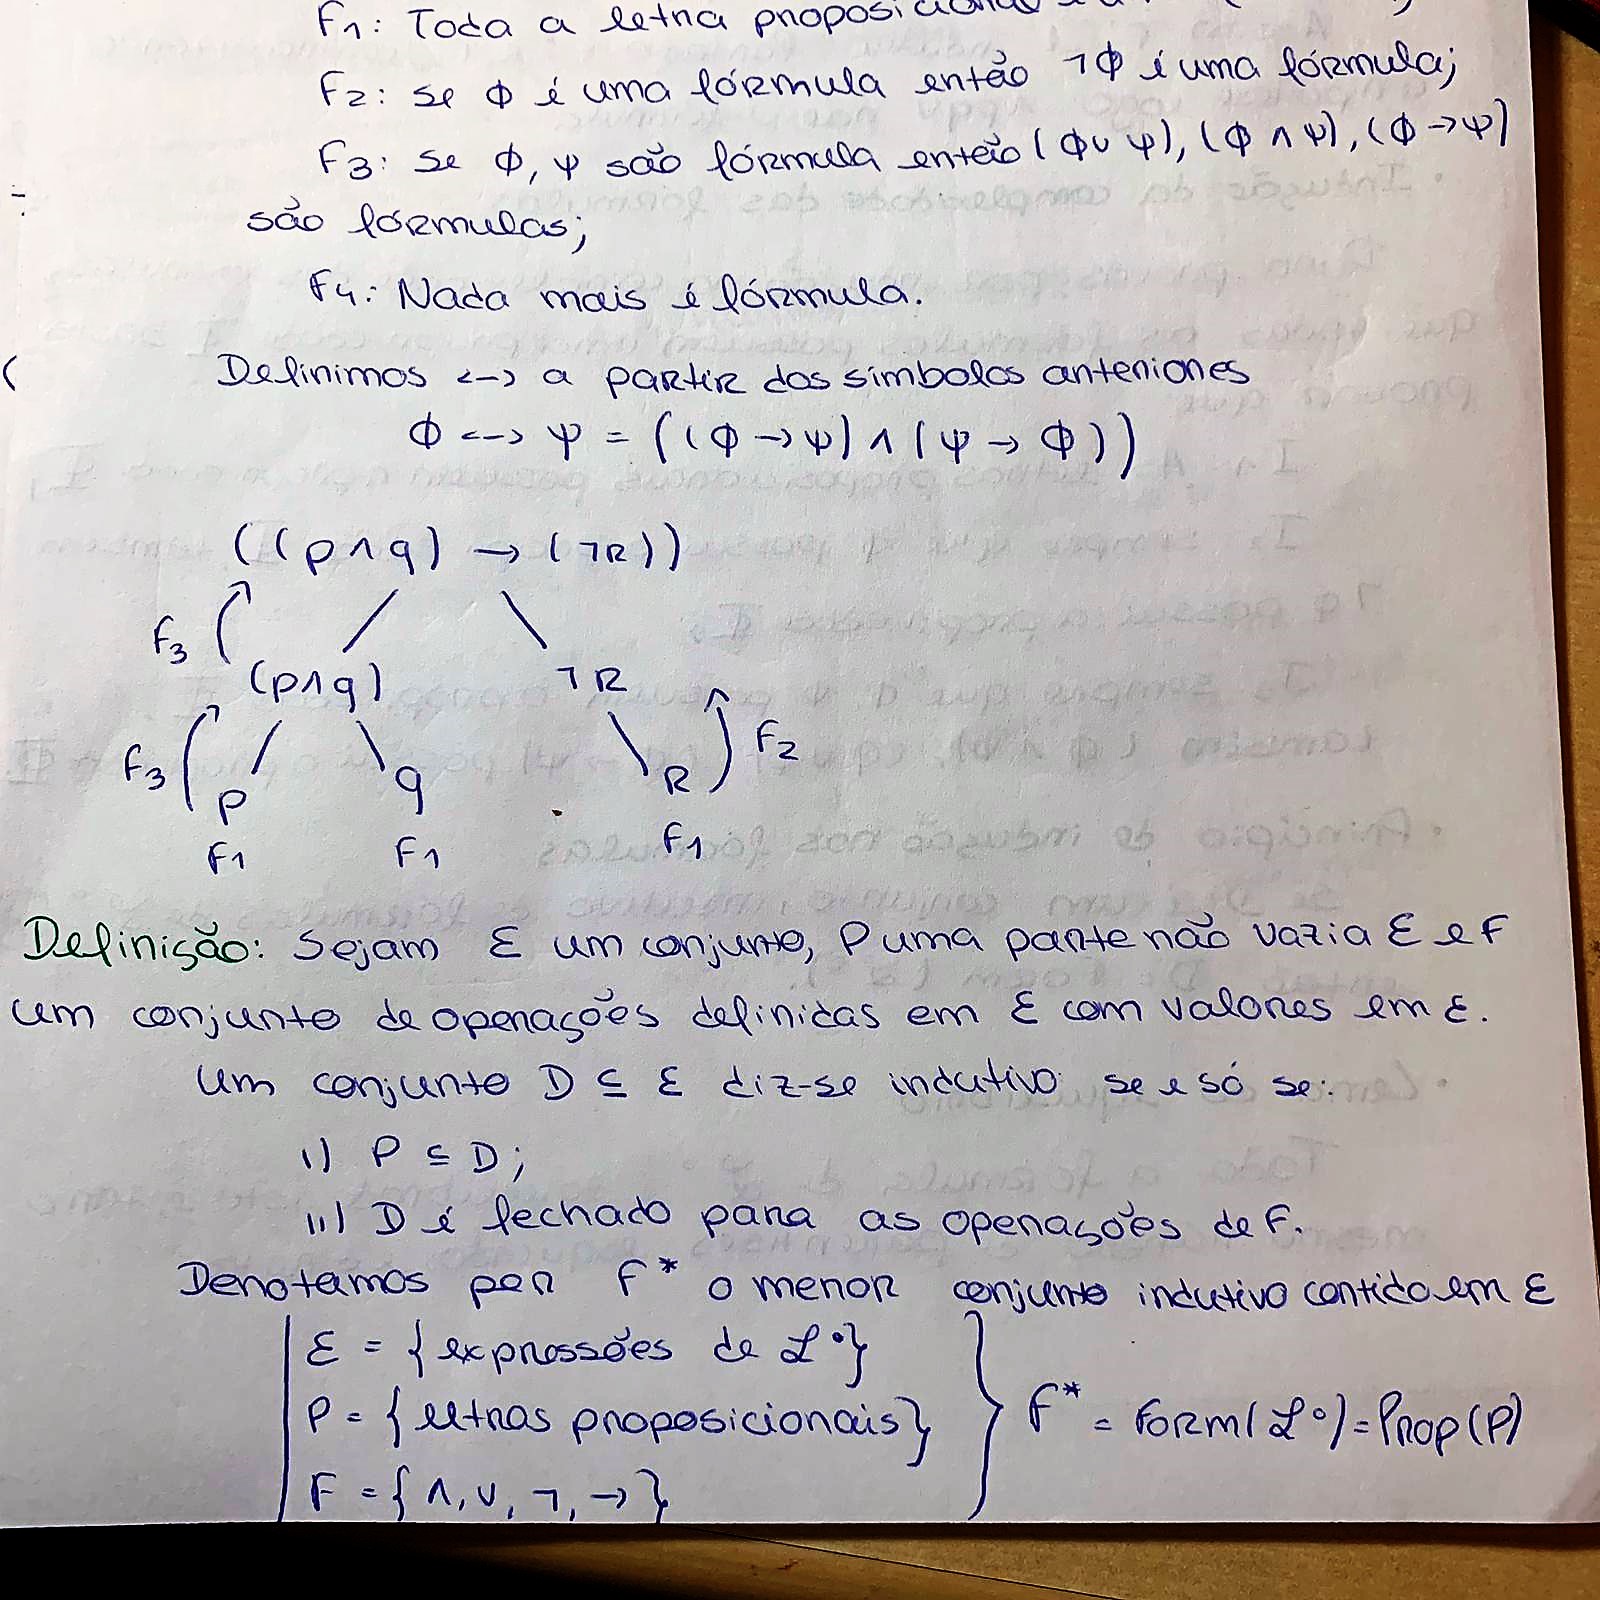 F1: Toda a letra proposicional
F2: se ϕ é uma fórmula então ¬ϕ é uma fórmula;
F3: se ϕ, ψ são fórmula então (ϕ∨ψ), (ϕ∧ψ), (ϕ→ψ)
são fórmulas;
F4: Nada mais é fórmula.
Definimos <-> a partir dos símbolos anteriores
ϕ <-> ψ = ((ϕ→ψ)∧(ψ→ϕ))
((p∧q) → (¬R))
F3
(p∧q) ¬R
F3 F2
P q R
F1 F1 F1
Definição: Sejam Ɛ um conjunto, P uma parte não vazia Ɛ e F
um conjunto de operações definidas em Ɛ com valores em Ɛ.
Um conjunto D ⊆ Ɛ diz-se indutivo se e só se:
i) P ⊆ D;
ii) D é fechado para as operações de F.
Denotamos por F* o menor conjunto indutivo contido em Ɛ
Ɛ = {expressões de ℒ°}
P = {letras proposicionais} F* = Form(ℒ°) = Prop(P)
F = {∧, ∨, ¬, →}